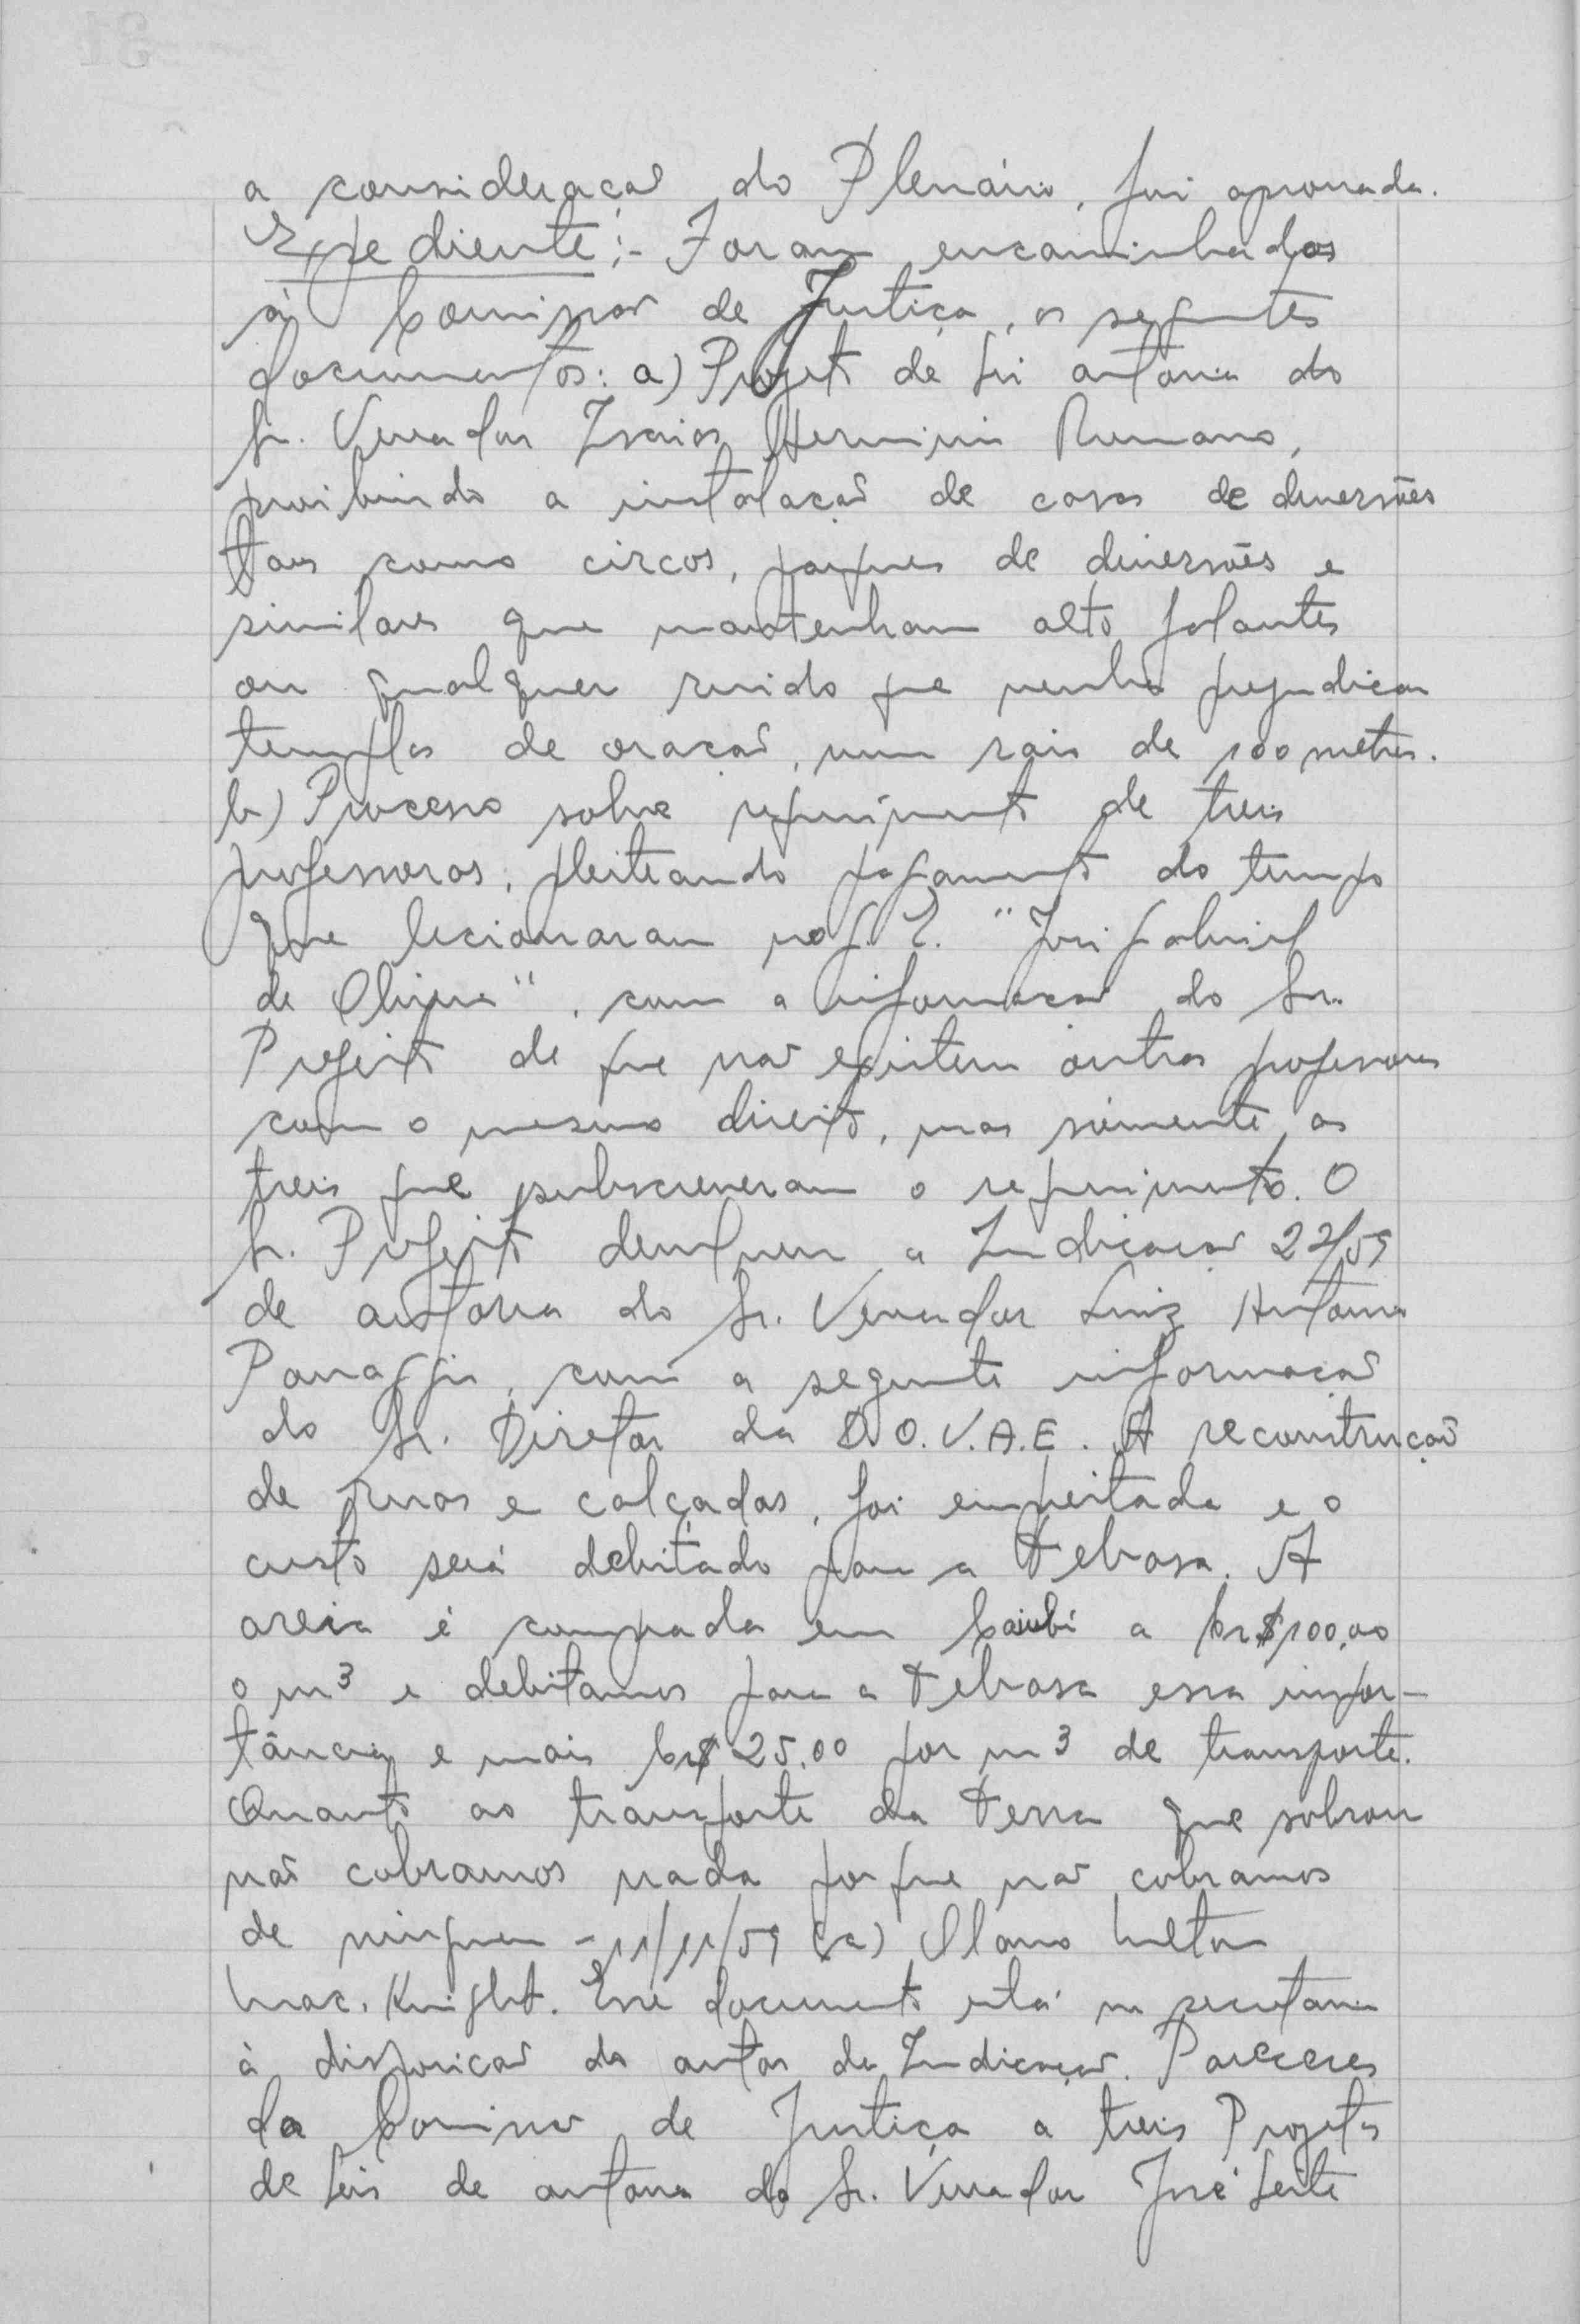 a consideração do Plenário, foi aprovada.
Expediente:- Foram encaminhados
à Comissão de Justiça, os seguintes
documentos: a) Projeto de Lei autoria do
Sr. Vereador Isaias Herminio Romano,
proibindo a instalação de casas de diversões
tais como circos, parques de diversões e
similares que mantenham alto falantes
ou qualquer ruido que venha prejudicar
templos de oração, num raio de 100 metros.
b) Processo sobre requerimento de treis
professoras, pleiteando pagamento do tempo
que lecionaram no G. E. "José Gabriel
de Oliveira", com a informação do Sr.
Prefeito de que não existem outros professores
com o mesmo direito, mas sómente as
treis que subscreveram o requerimento. O
Sr. Prefeito devolveu a Indicação 22/59
de autoria do Sr. Vereador Luiz Antonio
com a seguinte informação
do Sr. Diretor da D.O.V.A.E. A reconstrução
de ruas e calçadas, foi empeitada e o
custo será debitado para a Tebasa. A
areia é comprada em Caiubi a Cr$100,00
o m3 e debitamos para a Tebasa essa impor-
tância e mais Cr$ 25.00 por m3 de transporte.
Quanto ao transporte da terra que sobrou
não cobramos nada porque não cobramos
de ninguem - 11/11/59 (a) Olavo
Mac. Knight. Esse documento está na secretaria
à disposição do autor da Indicação. Pareceres
da Comissão de Justiça a treis Projetos
de Leis de autoria do Sr. Vereador José Leite